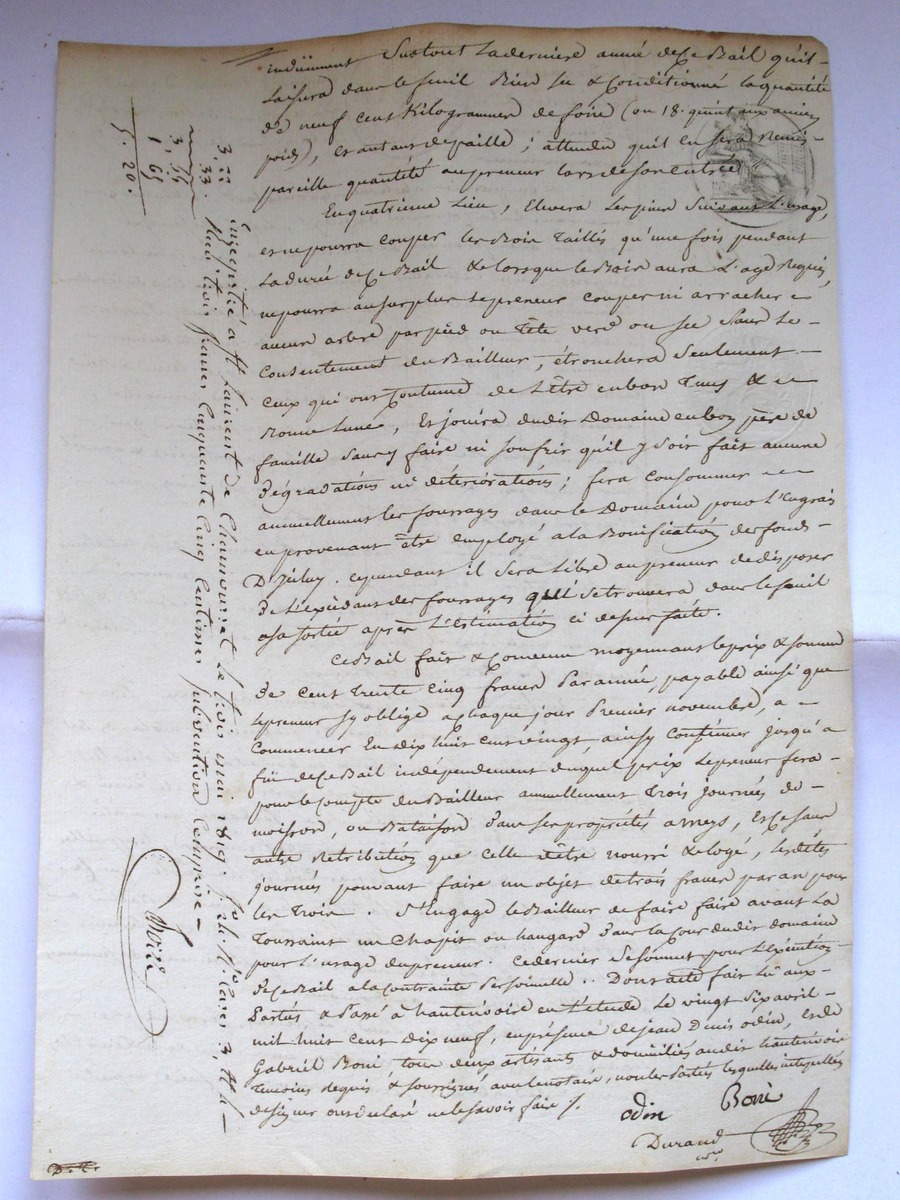 indûment surtout la derniere année de ce Bail qu'il
laissera dans le fenil Bien sec & Conditionné la quantité
de neuf cent Kilogrammes de foin (ou 18. quintaux ancien
poids), et autant de paille ; attendu qu'il en sera remis
pareille quantité au preneur lors de son entrée
En quatrieme Lieu, Elevera les Suivant L'usage,
et ne pourra couper les Bois Taillés qu'une fois pendant
La durée de ce Bail & lorsque le Bois aura L'age Requis,
ne pourra au surplus le preneur couper ni arracher
aucun arbre par pied ou Tête verd ou sec Sans Le
Consentement du Bailleur, étronchera Seulement
ceux qui ont Coutume de L'être en bon Tems & en
Bonne Lune, Et jouira dudit Domaine en bon père de
famille Sans y faire ni soufrir qu'il y soit fait aucune
Dégradations ni détériorations ; fera Consommer
annuellement les fourrages dans le Domaine pour L'Engrais
en provenant être employé a la Bonification des fonds
D'Iceluy. cependant il sera Libre au preneur de disposer
de L'excédant des fourrages qu'il se trouvera dans le fenil
a sa sortie après L'Estimation ci dessus faite.
Ce Bail fait & Convenu moyennant le prix & somme
de Cent trente Cinq francs Par année, payable ainsi que
le preneur s'y oblige a chaque jour Premier novembre, a
Commencer En dix huit cent vingt, ainsy Continuer jusqu'a
fin de ce Bail indépendement duquel prix Le preneur fera
pour le Compte du Bailleur annuellement Trois Journées de
moisson, ou Bataison dans ses propriétés a meys, Et ce sans
autre Retribution que celle d'être nourri & logé, Lesdites
journées pouvant faire un objet de trois francs par an pour
les Trois. S'Engage le Bailleur de faire faire avant La
Toussaint un Chapit ou hangard dans la Cour dudit domaine
pour L'usage du preneur. Ce dernier se soumet pour L'Exécution
de ce Bail a la contrainte Personnelle. Dont acte fait Lu aux
Parties & Passé à hauterivoire en L'étude Le vingt Six avril
mil huit Cent Dix neuf, en présence de jean Denis odin, et de
Gabriel Boné tous deux artisants & domiciliés audit hauterivoire
Temoins Requis & soussignés avec le notaire, non les Parties lesquelles interpellées
de signer ont déclaré ne le savoir faire /.
odin Boné
Durand
Enregistré à St Laurent de Chamousset Le trois mai 1819. fo 26. Ro Cases 3, 4 & 5
Reçu trois francs Cinquante Cinq Centimes subvention Comprise
3, 22
33.
3, 55
1 65
5. 20.